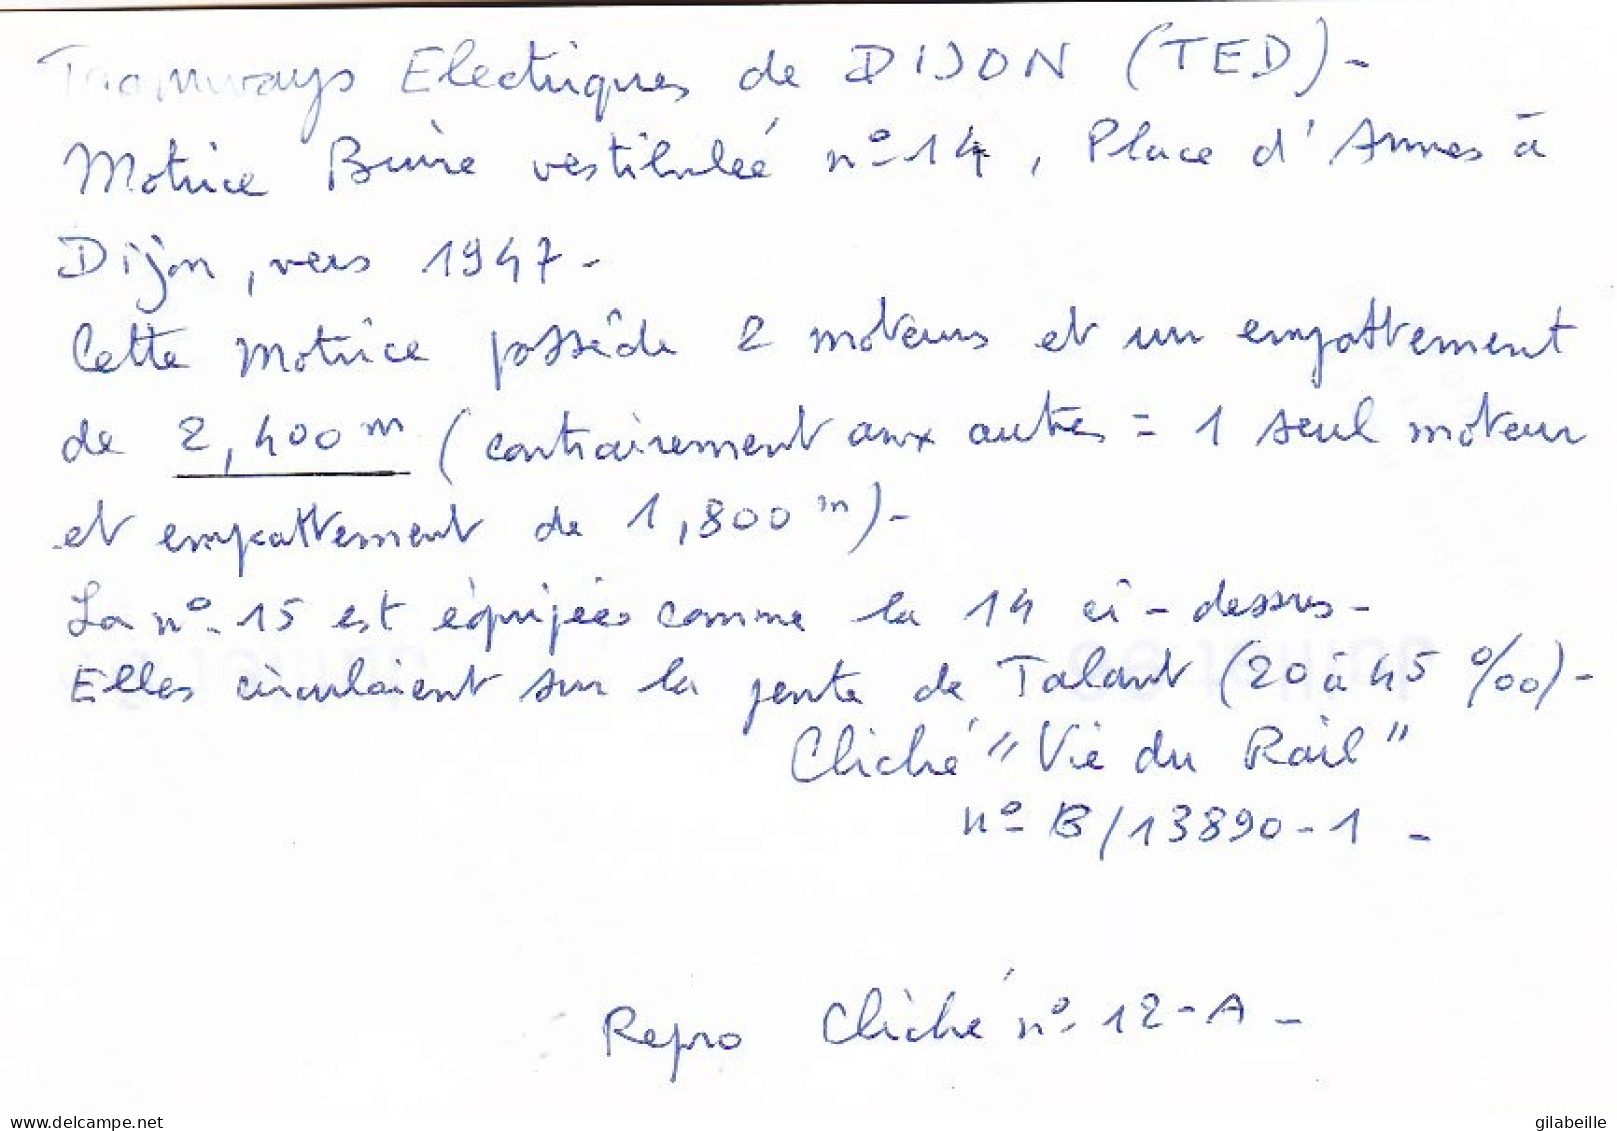 Tramways Electriques de DIJON (TED) -
Motrice Buire vestibulée n° 14, Place d'Armes à
Dijon, vers 1947 -
Cette motrice possède 2 moteurs et un empattement
de 2,400 m (contrairement aux autres = 1 seul moteur
et empattement de 1,800 m) -
La n° 15 est équipée comme la 14 ci-dessus -
Elles circulaient sur la pente de Talant (20 à 45 ‰) -
Cliché "Vie du Rail"
n° B/13890-1 -
Repro Cliché n° 12-A -
www.delcampe.net
gilabeille